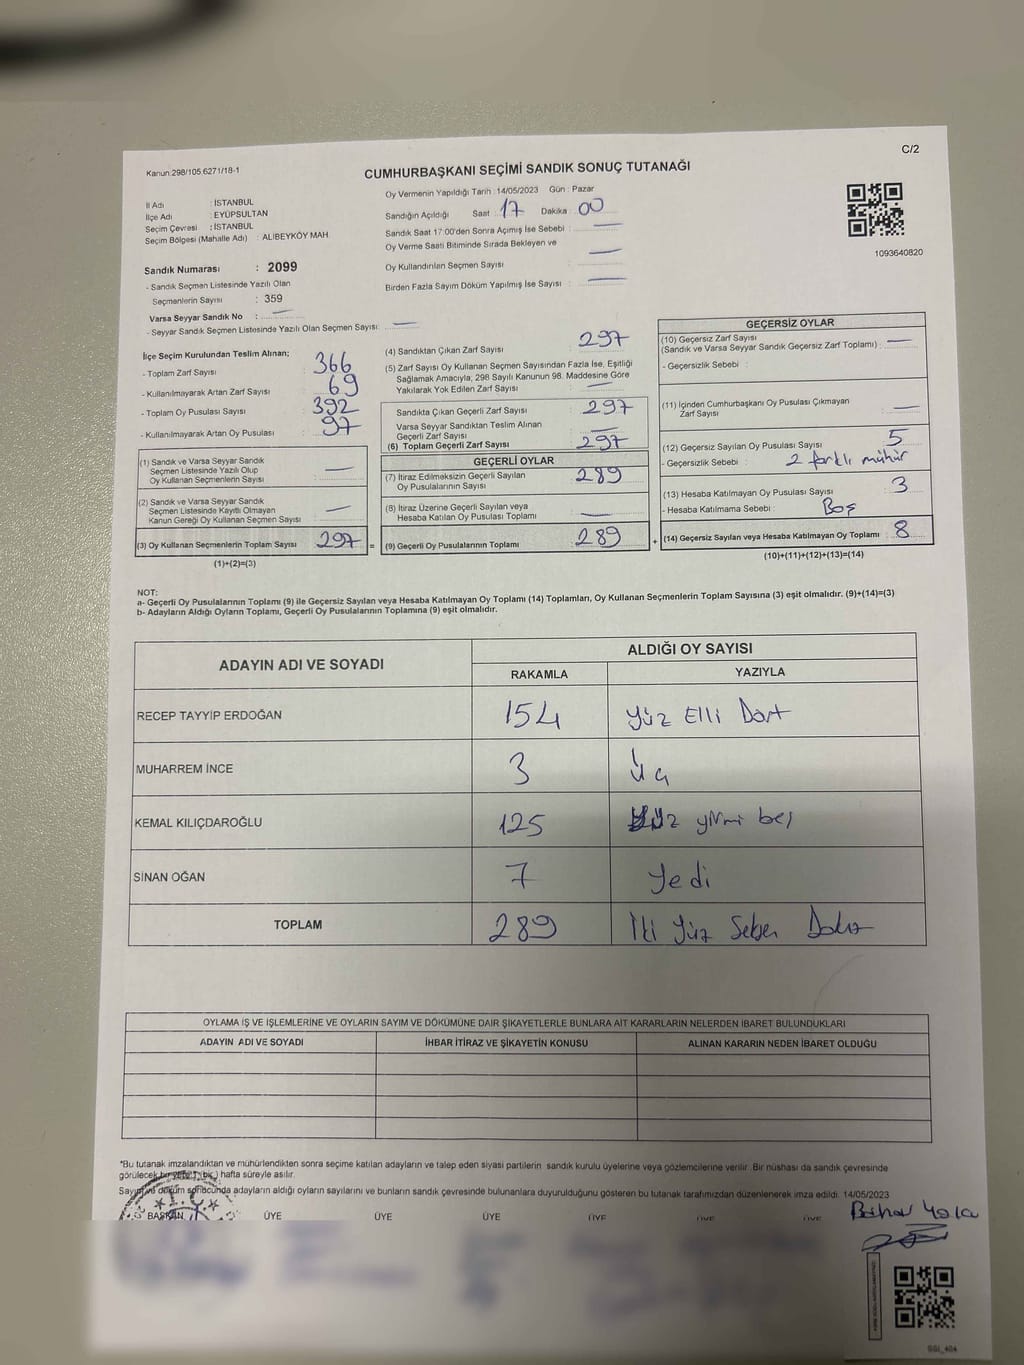 C/2
Kanun:298/105 6271/18-1
CUMHURBAŞKANI SEÇİMİ SANDIK SONUÇ TUTANAĞI
İl Adı : İSTANBUL
İlçe Adı : EYÜPSULTAN
Seçim Çevresi : İSTANBUL
Seçim Bölgesi (Mahalle Adı) : ALİBEYKÖY MAH.
Sandık Numarası : 2099
- Sandık Seçmen Listesinde Yazılı Olan
Seçmenlerin Sayısı : 359
Varsa Seyyar Sandık No : —
- Seyyar Sandık Seçmen Listesinde Yazılı Olan Seçmen Sayısı: —
Oy Vermenin Yapıldığı Tarih : 14/05/2023 Gün : Pazar
Sandığın Açıldığı Saat : 17 Dakika : 00
Sandık Saat 17:00'den Sonra Açımış İse Sebebi : —
Oy Verme Saati Bitiminde Sırada Bekleyen ve
Oy Kullandırılan Seçmen Sayısı : —
Birden Fazla Sayım Döküm Yapılmış İse Sayısı : —
1093640820
İlçe Seçim Kurulundan Teslim Alınan;
- Toplam Zarf Sayısı : 366
- Kullanılmayarak Artan Zarf Sayısı : 69
- Toplam Oy Pusulası Sayısı : 392
- Kullanılmayarak Artan Oy Pusulası : 97
(1) Sandık ve Varsa Seyyar Sandık
Seçmen Listesinde Yazılı Olup
Oy Kullanan Seçmenlerin Sayısı : —
(2) Sandık ve Varsa Seyyar Sandık
Seçmen Listesinde Kayıtlı Olmayan
Kanun Gereği Oy Kullanan Seçmen Sayısı : —
(3) Oy Kullanan Seçmenlerin Toplam Sayısı : 297 =
(1)+(2)=(3)
(4) Sandıktan Çıkan Zarf Sayısı : 297
(5) Zarf Sayısı Oy Kullanan Seçmen Sayısından Fazla İse, Eşitliği
Sağlamak Amacıyla; 298 Sayılı Kanunun 98. Maddesine Göre
Yakılarak Yok Edilen Zarf Sayısı : —
Sandıkta Çıkan Geçerli Zarf Sayısı : 297
Varsa Seyyar Sandıktan Teslim Alınan
Geçerli Zarf Sayısı : —
(6) Toplam Geçerli Zarf Sayısı : 297
GEÇERLİ OYLAR
(7) İtiraz Edilmeksizin Geçerli Sayılan
Oy Pusulalarının Sayısı : 289
(8) İtiraz Üzerine Geçerli Sayılan veya
Hesaba Katılan Oy Pusulası Toplamı : —
(9) Geçerli Oy Pusulalarının Toplamı : 289 +
GEÇERSİZ OYLAR
(10) Geçersiz Zarf Sayısı
(Sandık ve Varsa Seyyar Sandık Geçersiz Zarf Toplamı) : —
- Geçersizlik Sebebi :
(11) İçinden Cumhurbaşkanı Oy Pusulası Çıkmayan
Zarf Sayısı : —
(12) Geçersiz Sayılan Oy Pusulası Sayısı : 5
- Geçersizlik Sebebi : 2 farklı mühür
(13) Hesaba Katılmayan Oy Pusulası Sayısı : 3
- Hesaba Katılmama Sebebi : Boş
(14) Geçersiz Sayılan veya Hesaba Katılmayan Oy Toplamı : 8
(10)+(11)+(12)+(13)=(14)
NOT:
a- Geçerli Oy Pusulalarının Toplamı (9) ile Geçersiz Sayılan veya Hesaba Katılmayan Oy Toplamı (14) Toplamları, Oy Kullanan Seçmenlerin Toplam Sayısına (3) eşit olmalıdır. (9)+(14)=(3)
b- Adayların Aldığı Oyların Toplamı, Geçerli Oy Pusulalarının Toplamına (9) eşit olmalıdır.
ADAYIN ADI VE SOYADI
ALDIĞI OY SAYISI
RAKAMLA YAZIYLA
RECEP TAYYİP ERDOĞAN 154 Yüz Elli Dört
MUHARREM İNCE 3 Üç
KEMAL KILIÇDAROĞLU 125 Yüz yirmi beş
SİNAN OĞAN 7 Yedi
TOPLAM 289 İki Yüz Seksen Dokuz
OYLAMA İŞ VE İŞLEMLERİNE VE OYLARIN SAYIM VE DÖKÜMÜNE DAİR ŞİKAYETLERLE BUNLARA AİT KARARLARIN NELERDEN İBARET BULUNDUKLARI
ADAYIN ADI VE SOYADI İHBAR İTİRAZ VE ŞİKAYETİN KONUSU ALINAN KARARIN NEDEN İBARET OLDUĞU
*Bu tutanak imzalandıktan ve mühürlendikten sonra seçime katılan adayların ve talep eden siyasi partilerin sandık kurulu üyelerine veya gözlemcilerine verilir. Bir nüshası da sandık çevresinde
görülecek bir yere 1 (bir) hafta süreyle asılır.
Sayım ve döküm sonucunda adayların aldığı oyların sayılarını ve bunların sandık çevresinde bulunanlara duyurulduğunu gösteren bu tutanak tarafımızdan düzenlenerek imza edildi. 14/05/2023
BAŞKAN ÜYE ÜYE ÜYE ÜYE ÜYE ÜYE